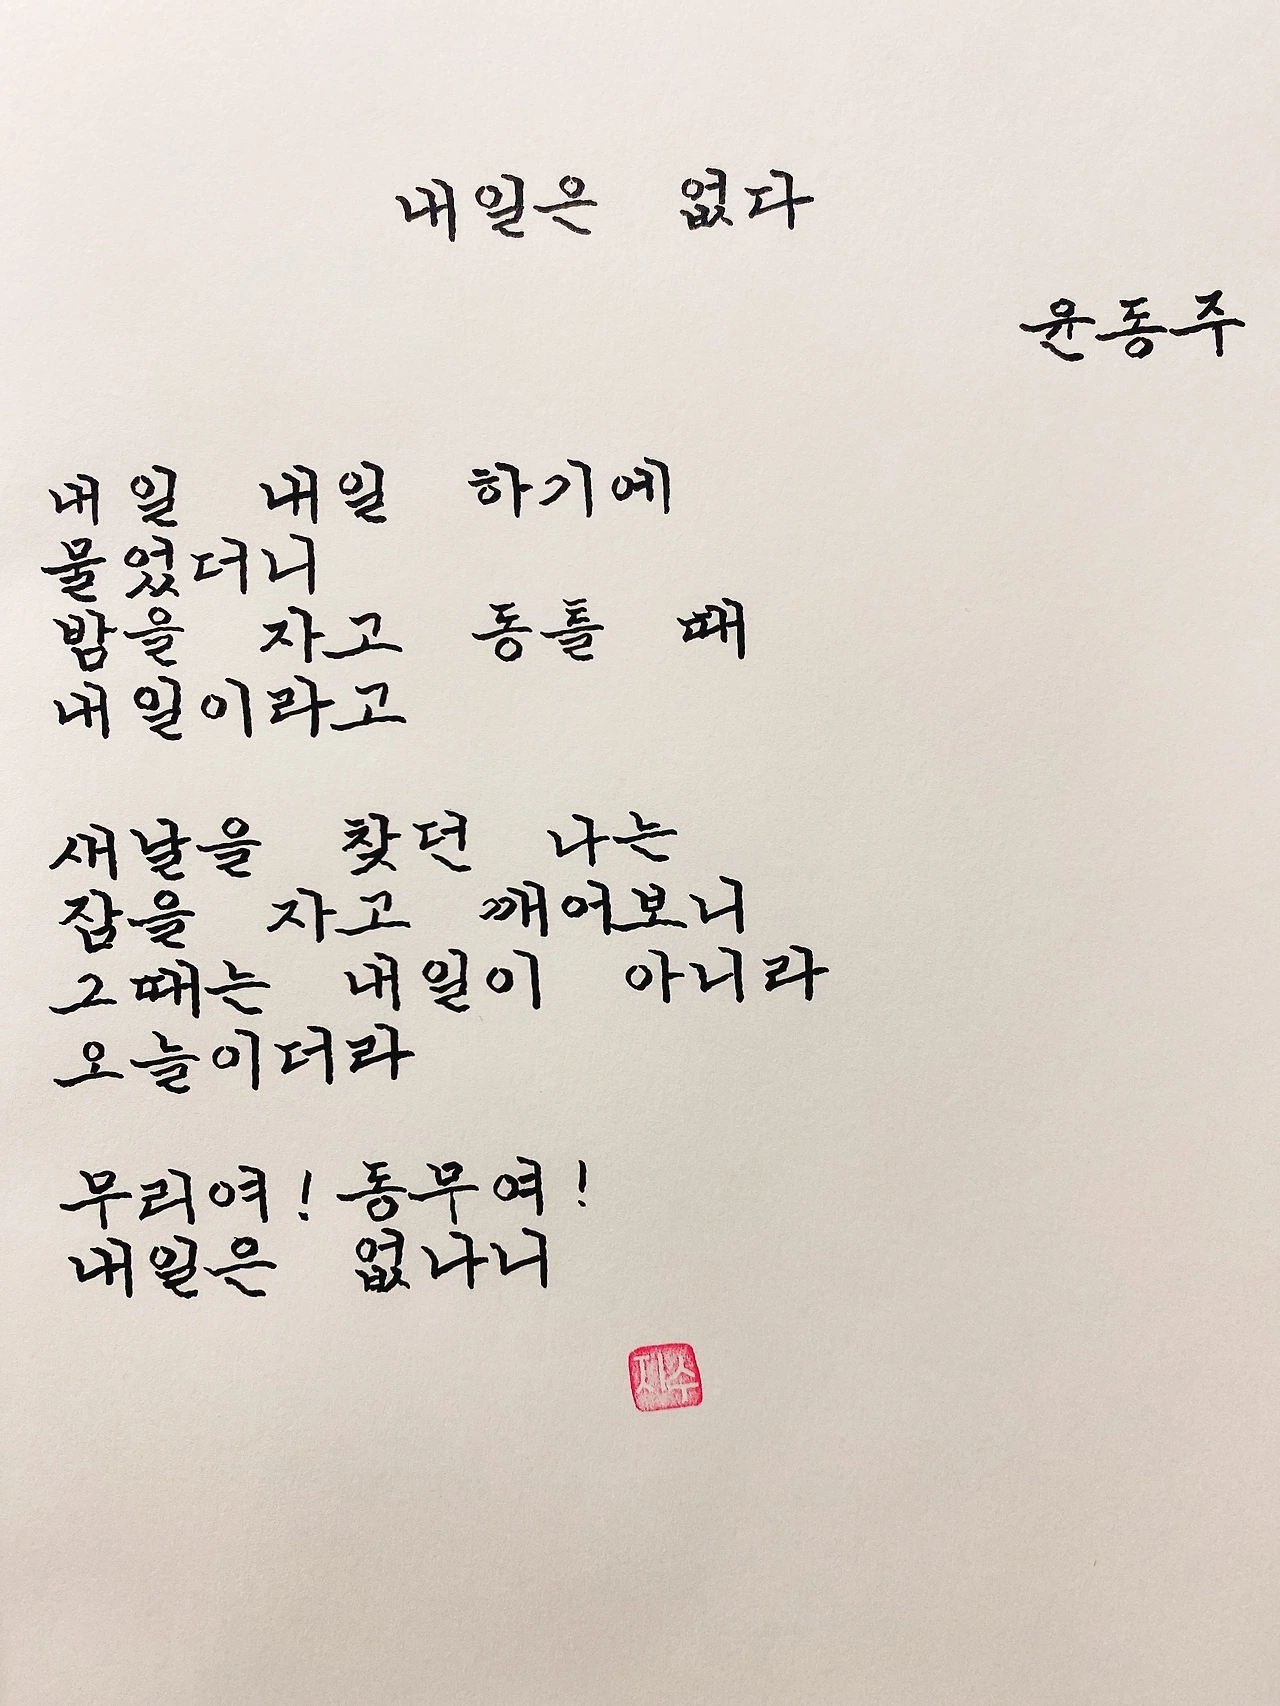 내일은 없다
윤동주
내일 내일 하기에
물었더니
밤을 자고 동틀 때
내일이라고
새날을 찾던 나는
잠을 자고 깨어보니
그때는 내일이 아니라
오늘이더라
무리여! 동무여!
내일은 없나니